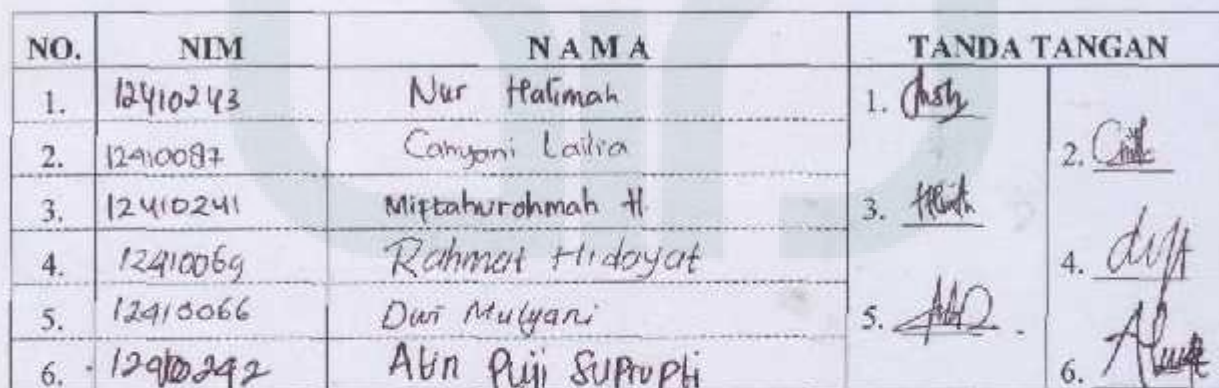 NO. NIM NAMA TANDA TANGAN
1. 12410243 Nur Halimah 1.
2. 12410087 Cahyani Lailia 2.
3. 12410241 Miftahurohmah H. 3.
4. 12410069 Rahmat Hidayat 4.
5. 12410066 Dwi Mulyani 5.
6. 12410242 Puji Suprapti 6.